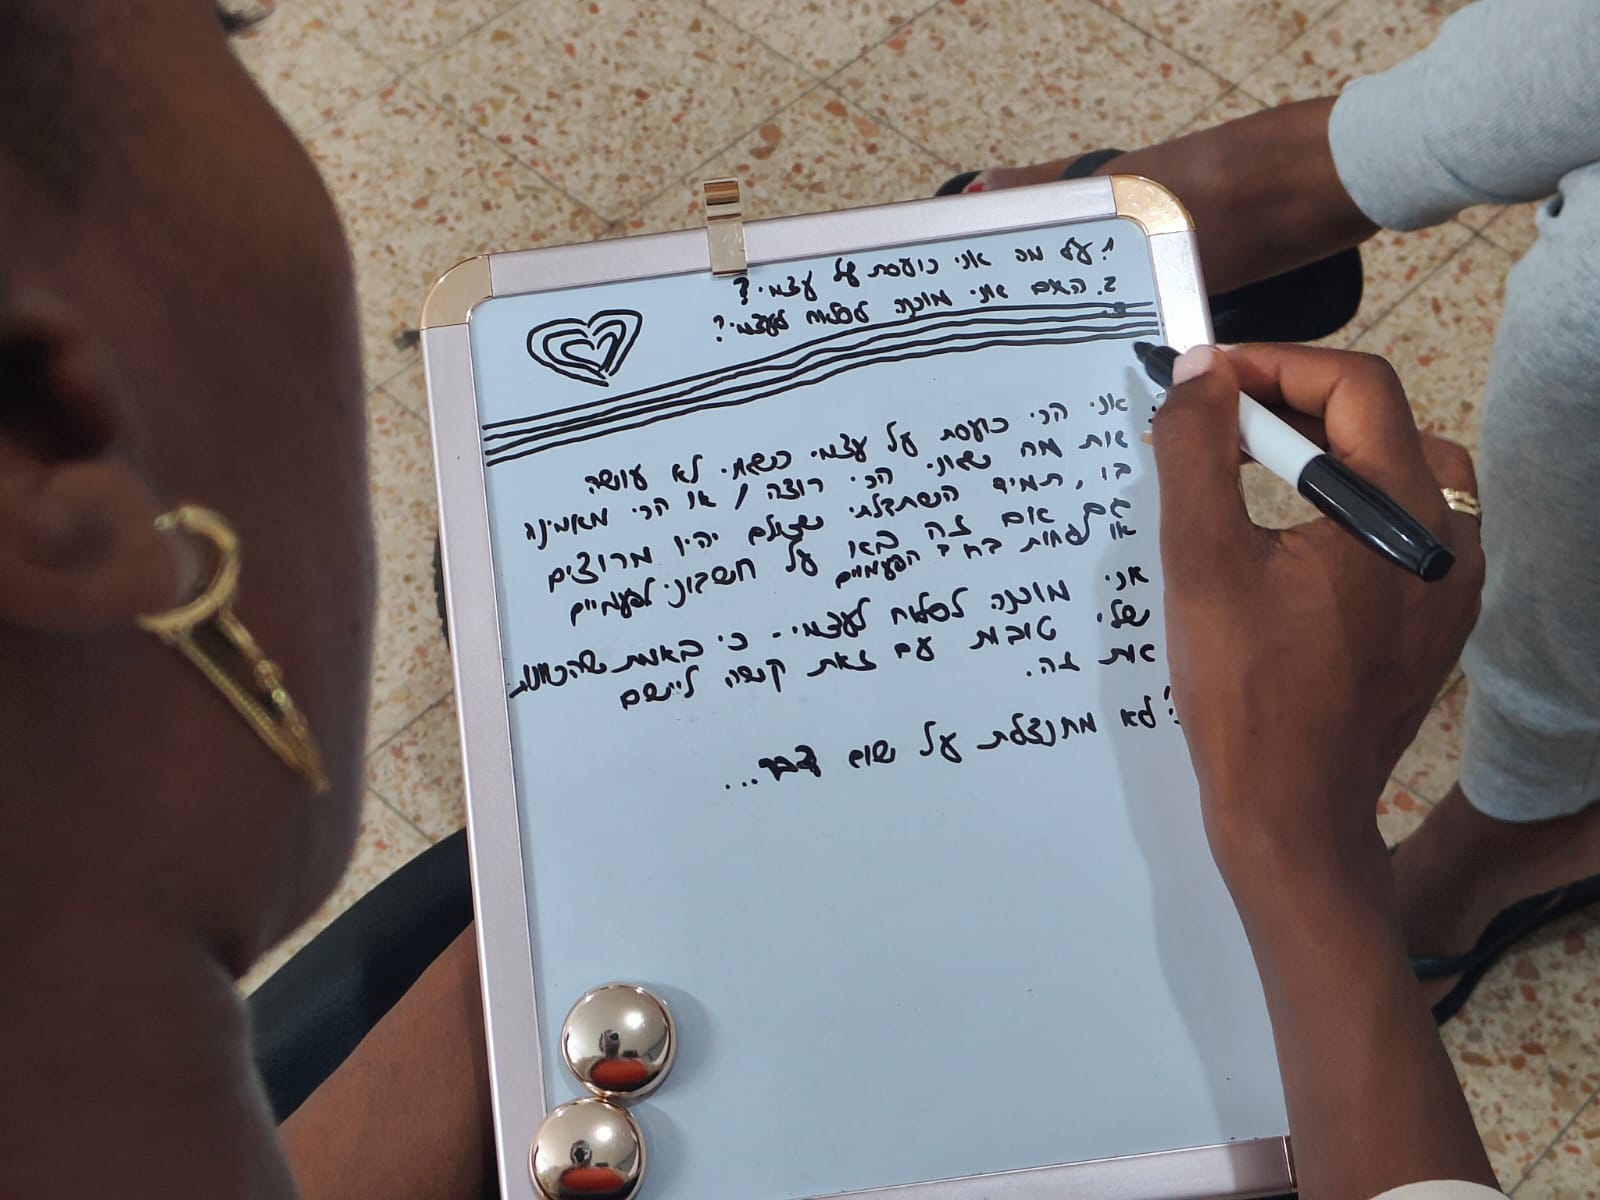 1. על מה אני כועסת על עצמי?
2. האם אני מוכנה לסלוח לעצמי?
אני הכי כועסת על עצמי כשאני לא עושה
את מה שאני הכי רוצה / או הכי מאמינה
בו, תמיד השתדלתי שכולם יהיו מרוצים
גם אם זה בא על חשבוני לפעמיים
או לפחות ברוב הפעמיים
אני מוכנה לסלוח לעצמי - כי באמת שהכוונות
שלי טובות עם זאת קשה ליישם
את זה.
לא מתנצלת על שום דבר...